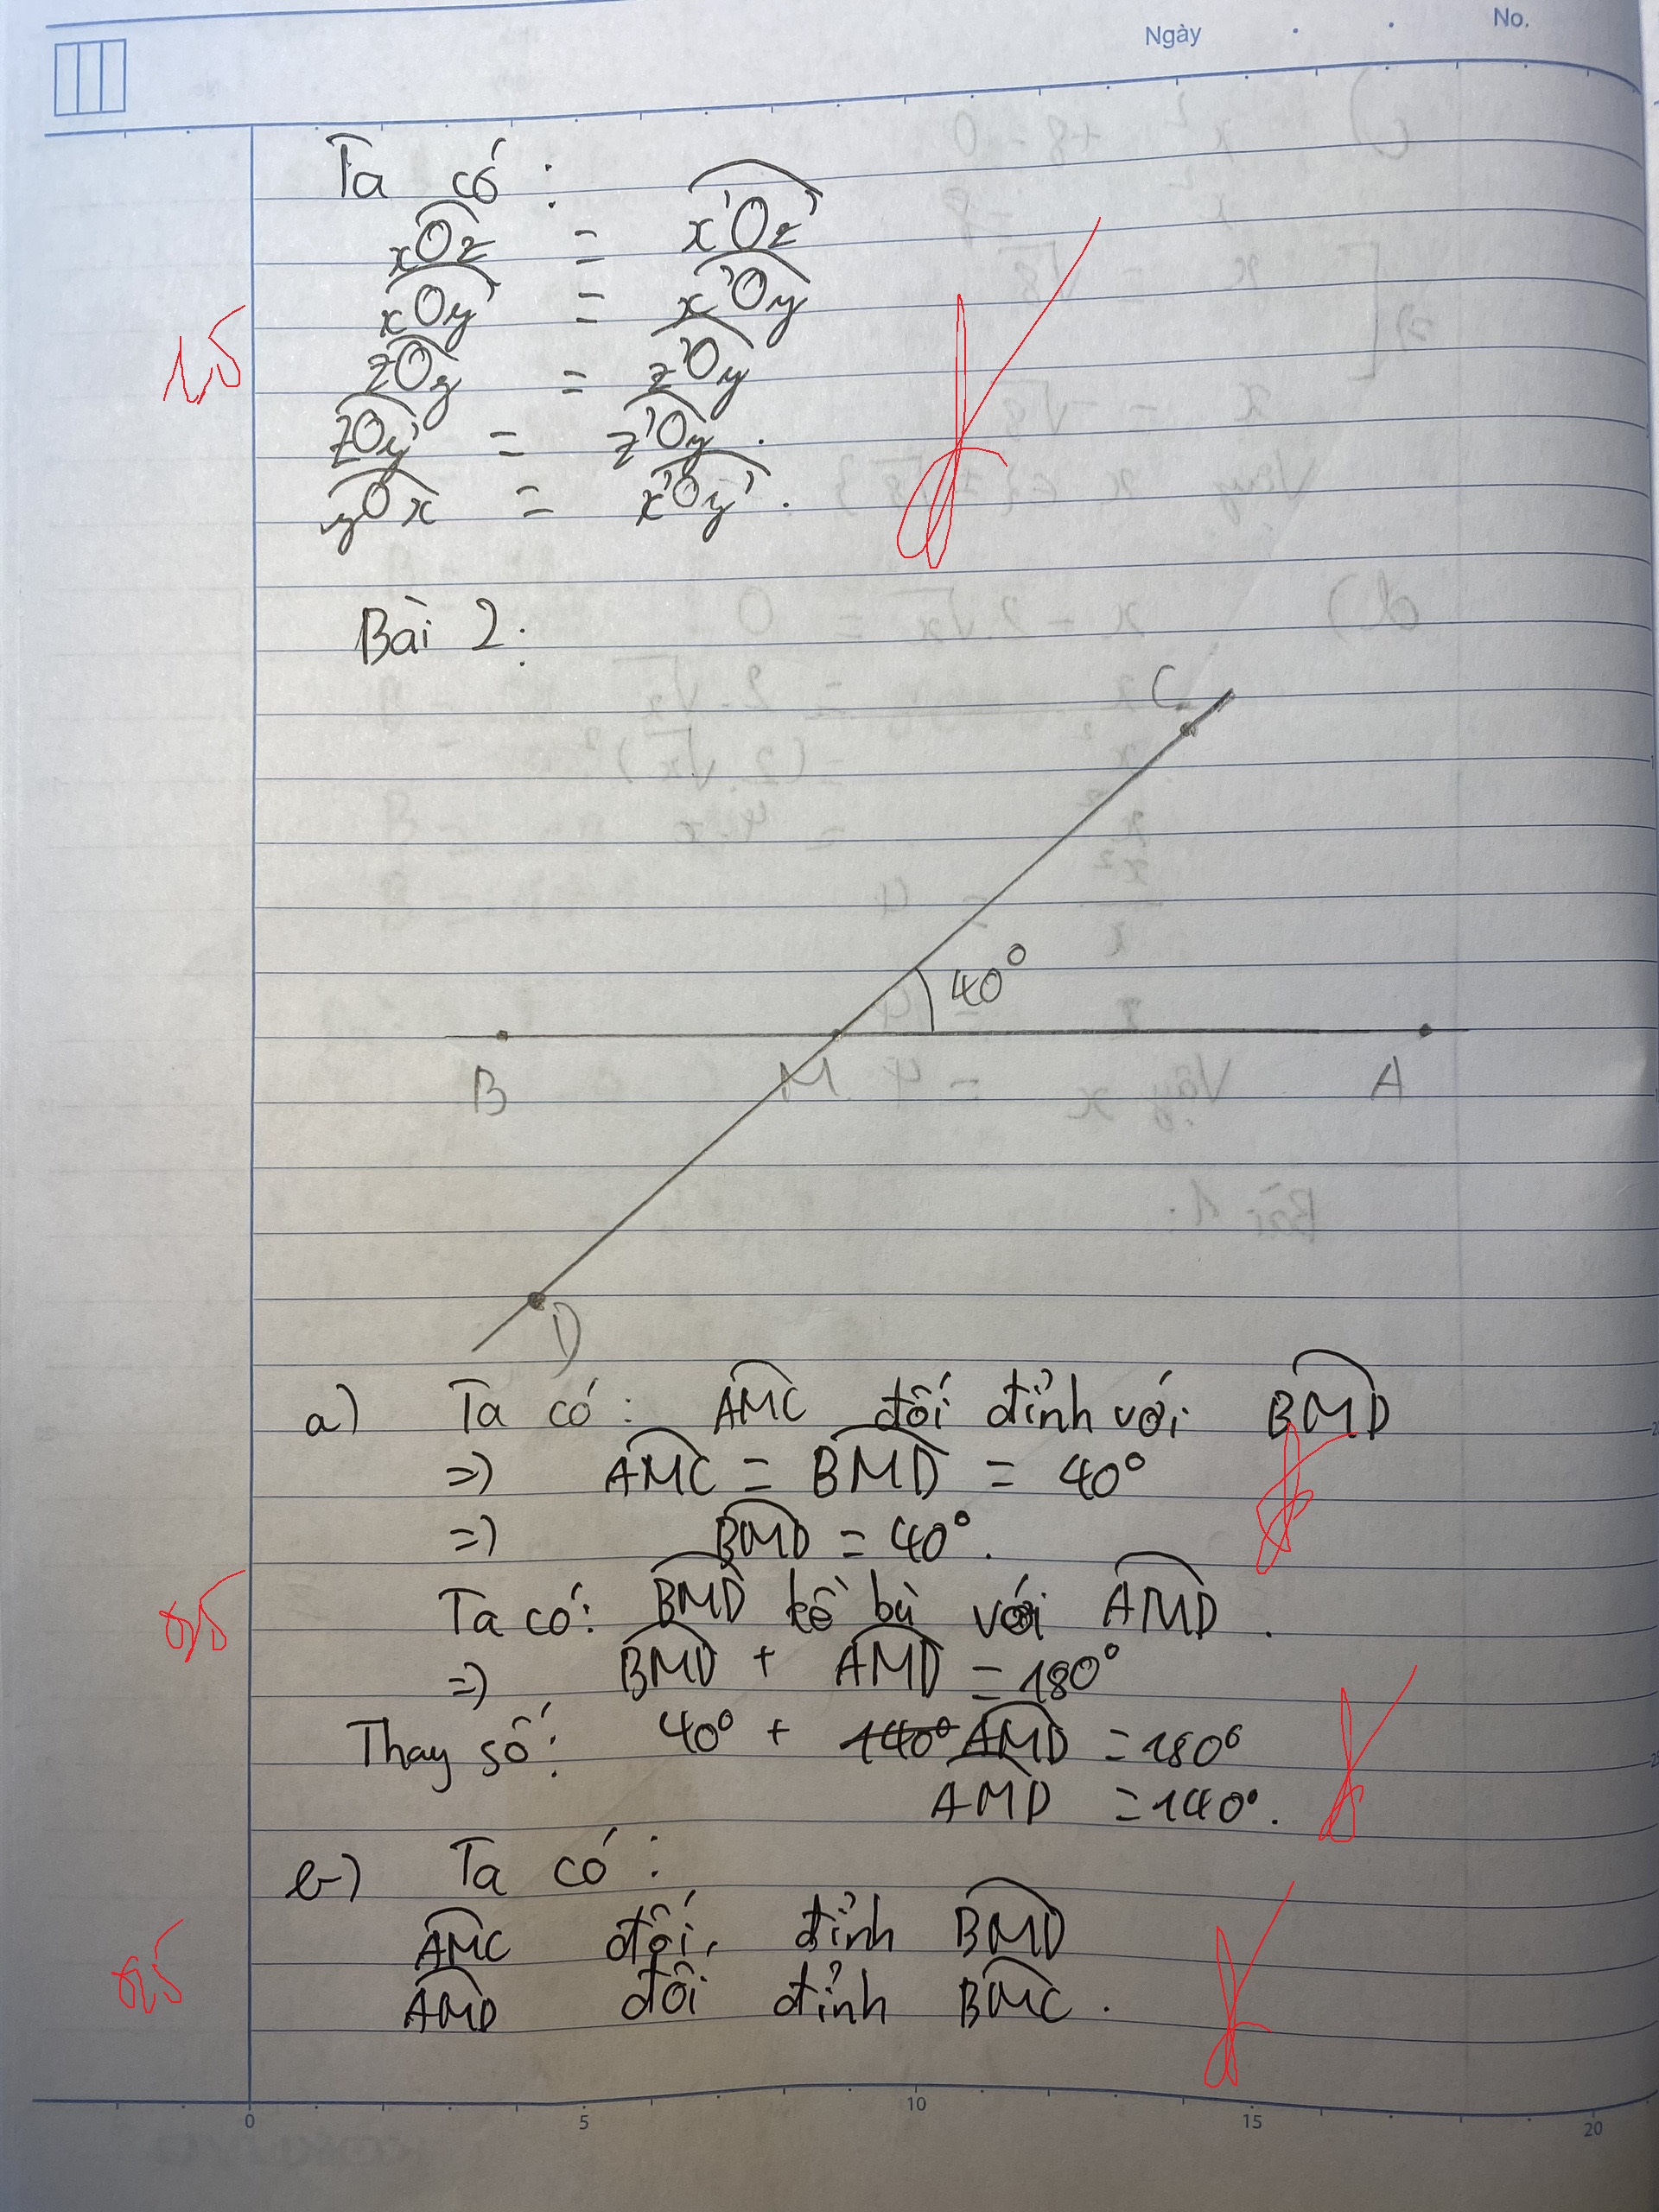 Ngày
No.
Ta có:
xOz = x'Oz'
xOy' = x'Oy
zOy = z'Oy
zOy' = z'Oy.
yOx = x'Oy'.
1,5
Bài 2:
C
40°
B M A
D
a) Ta có: AMC đối đỉnh với BMD
=) AMC = BMD = 40°
=) BMD = 40°.
Ta có: BMD kề bù với AMD.
0,5
=) BMD + AMD = 180°
Thay số: 40° + 140° AMD = 180°
AMD = 140°.
b) Ta có:
AMC đối đỉnh BMD
0,5
AMD đối đỉnh BMC.
0 5 10 15 20